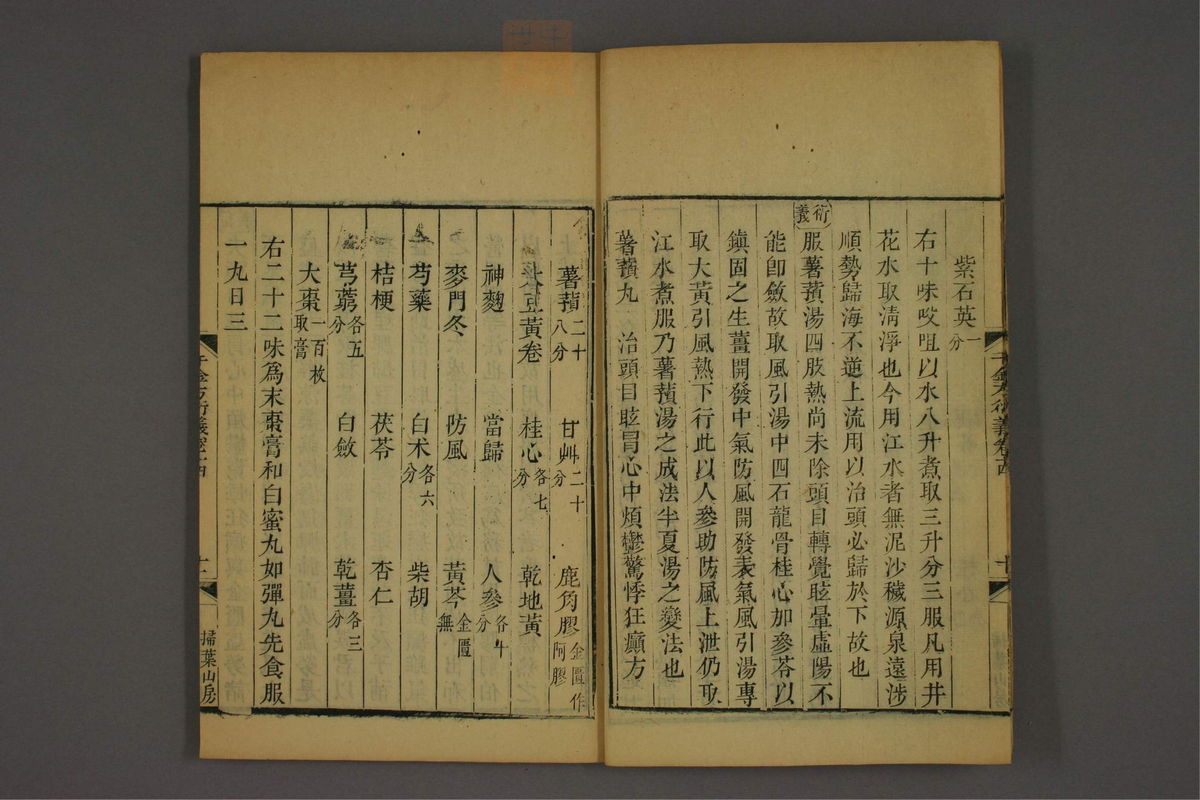 紫石英一分
右十味㕮咀以水八升煮取三升分三服凡用井
花水取清淨也今用江水者無泥沙穢源泉遠涉
順勢歸海不逆上流用以治頭必歸於下故也
衍義
服薯蕷湯四肢熱尚未除頭目轉覺眩暈虛陽不
能卽斂故取風引湯中四石龍骨桂心加參苓以
鎮固之生薑開發中氣防風開發表氣風引湯專
取大黃引風熱下行此以人參助防風上泄仍取
江水煮服乃薯蕷湯之成法半夏湯之變法也
薯蕷丸　治頭目眩冒心中煩鬱驚悸狂癲方
千金方衍義卷十四　十
薯蕷二十八分　甘艸二十分　鹿角膠金匱作阿膠
大豆黃卷　桂心各七分　乾地黃
神麴　當歸　人參各十分
麥門冬　防風　黃芩金匱無
芍藥　白朮各六分　柴胡
桔梗　茯苓　杏仁
芎藭各五分　白斂　乾薑各三分
大棗一百枚取膏
右二十二味爲末棗膏和白蜜丸如彈丸先食服
一丸日三
千金方衍義卷十四　十一　掃葉山房